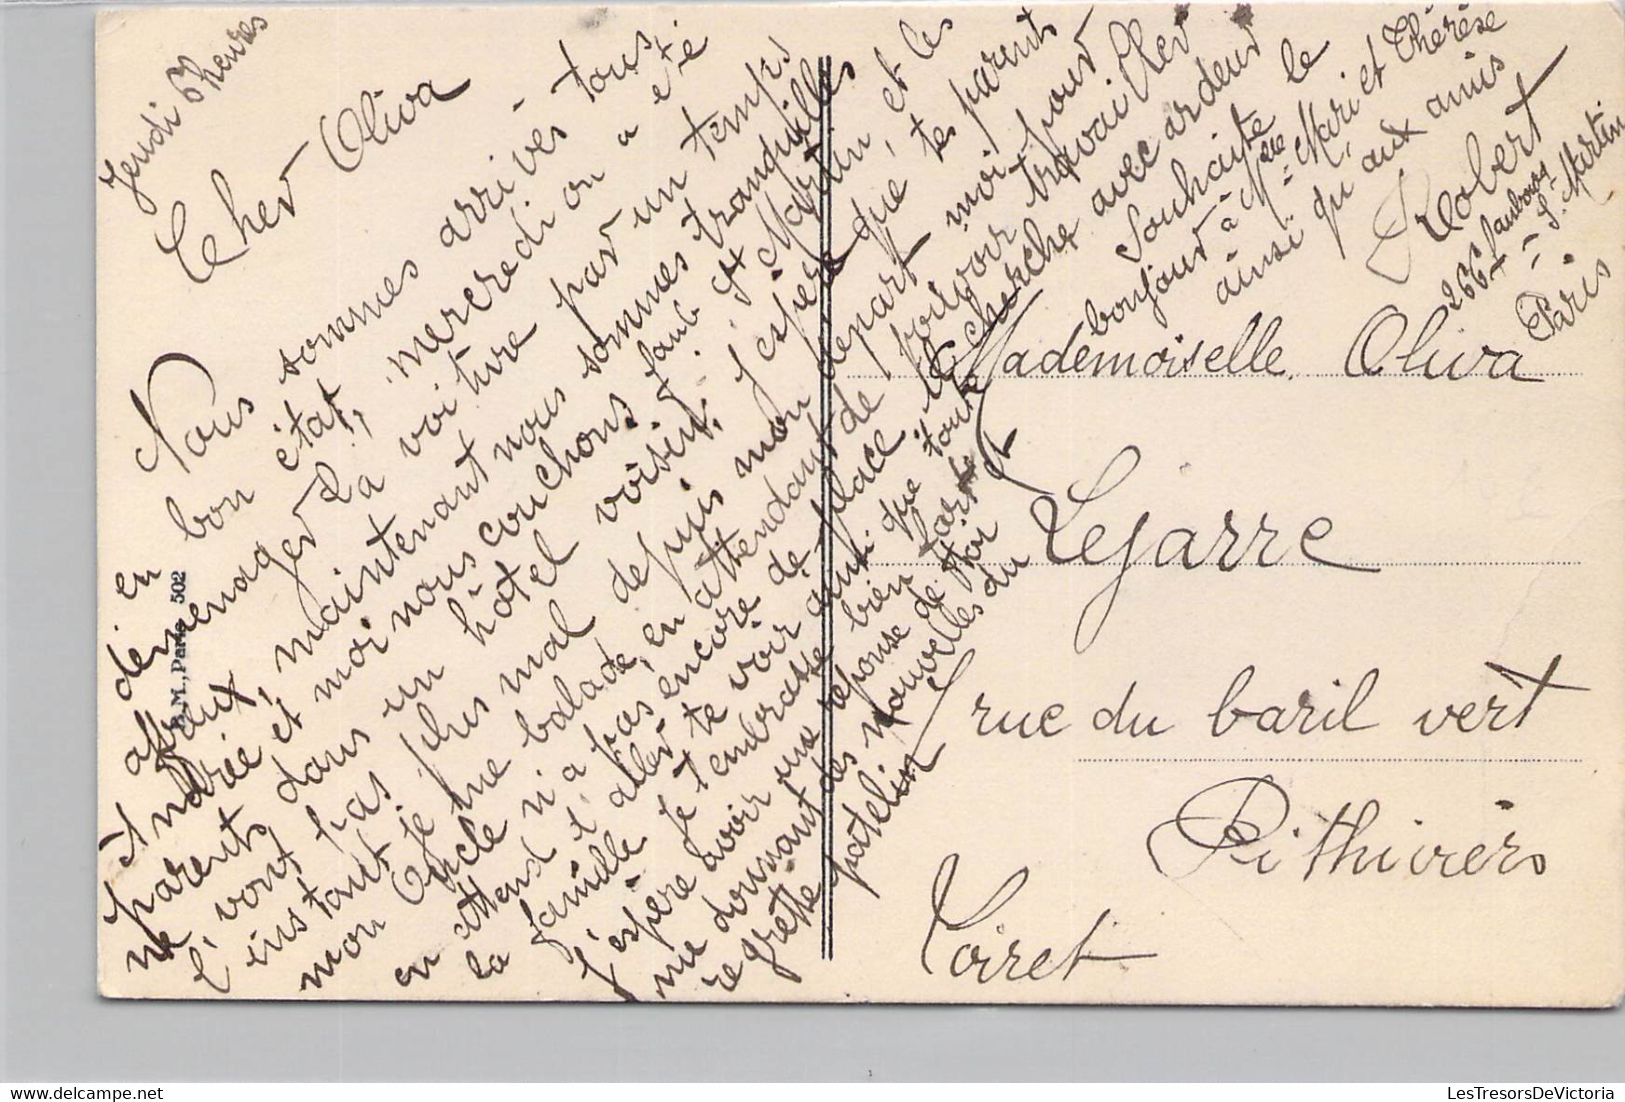 Jeudi 6 heures
Cher Oliva
Nous sommes arrivés tous
en bon état, mercredi on a été
déménager la voiture par un temps
affreux, maintenant nous sommes tranquilles
et Marie et moi nous couchons faub St Martin, et les
parents dans un hôtel voisin. J'espère que tes parents
ne vont pas plus mal depuis mon départ moi pour
l'instant je me balade, en attendant de pouvoir travailler
mon Oncle n'a pas encore de place il cherche avec ardeur
en attend t aller te voir ainsi que toute
la famille je t'embrasse bien fort
J'espère avoir une réponse de toi
me donnant des nouvelles du
regretté patelin
Souhaite le
bonjour à Mme Mari et Thérèse
ainsi qu'aux amis
Robert
266 faubourg St Martin
Paris
Mademoiselle Oliva
Lejarre
rue du baril vert
Pithiviers
Loiret
B.M., Paris 502
LesTresorsDeVictoria.com